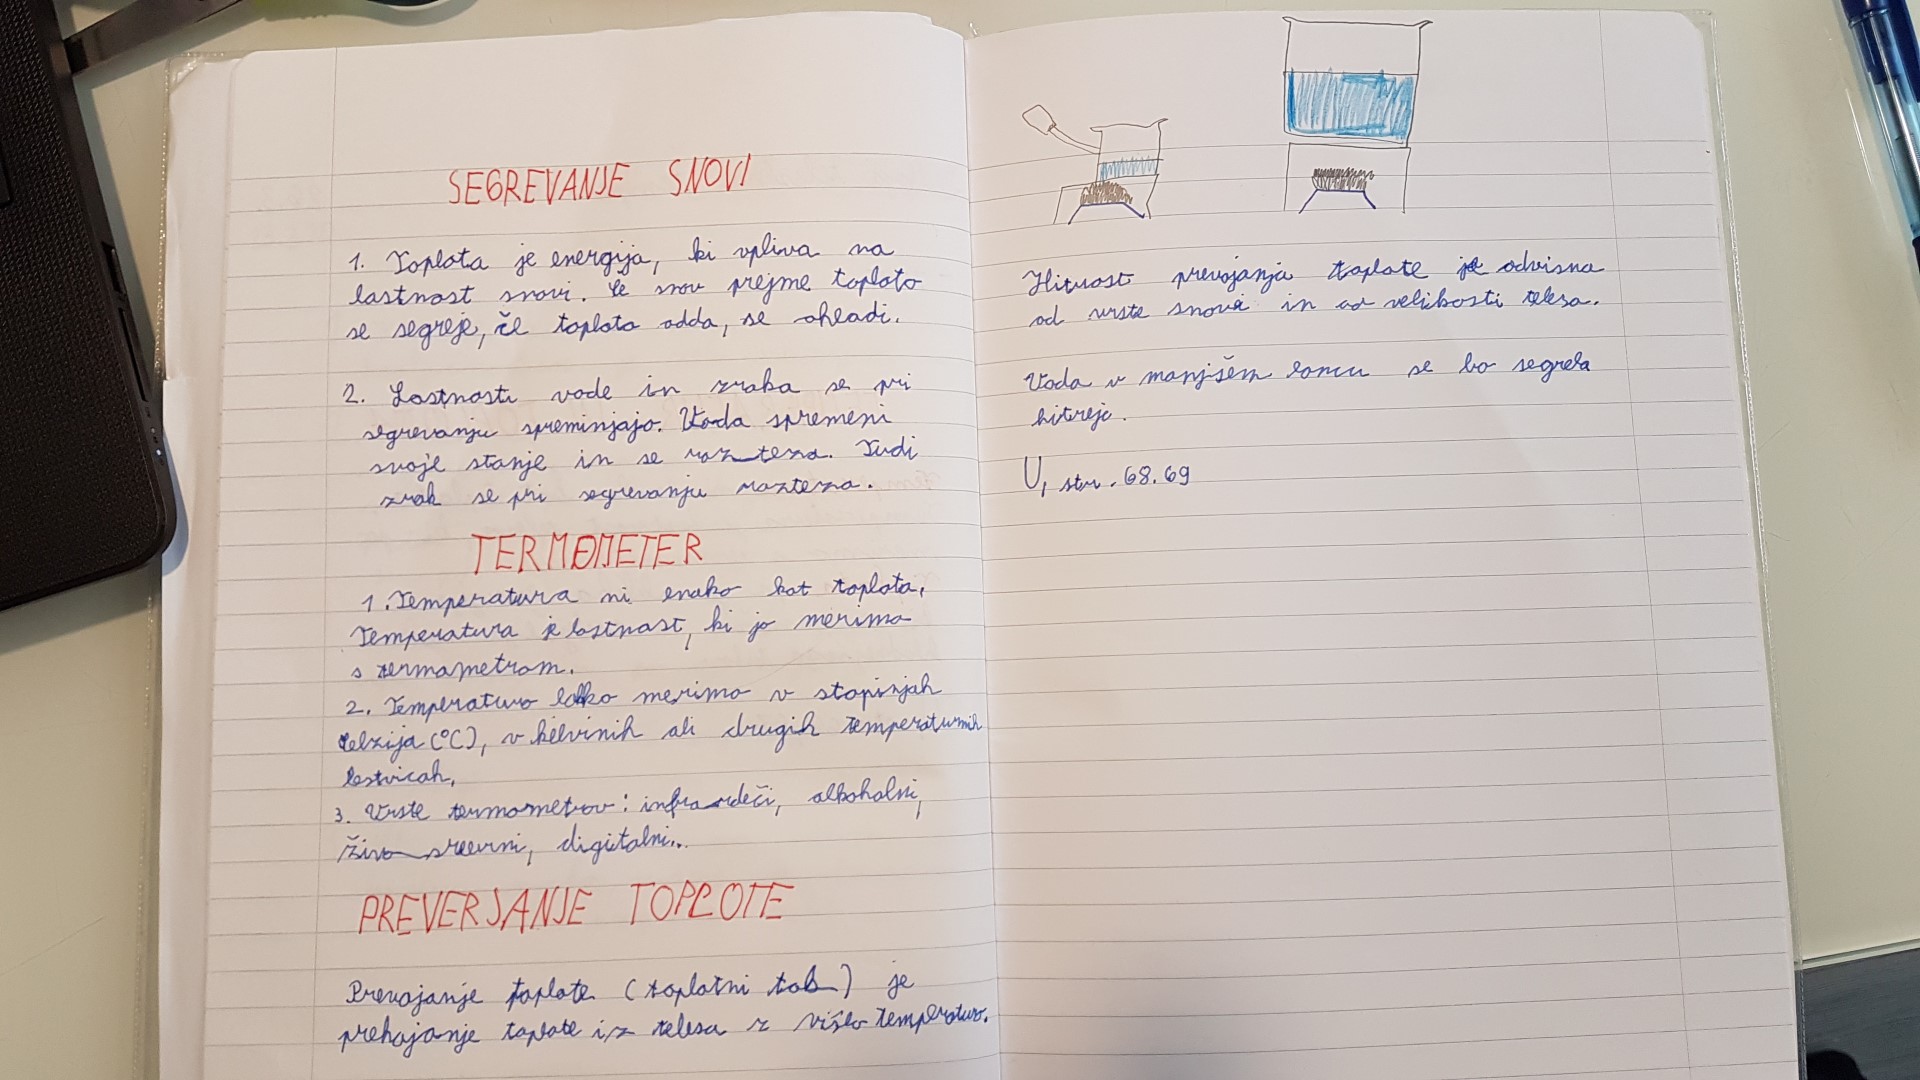 SEGREVANJE SNOVI
1. Toplota je energija, ki vpliva na
lastnost snovi. Če snov prejme toploto
se segreje, če toploto odda, se ohladi.
2. Lastnosti vode in zraka se pri
segrevanju spreminjajo. Voda spremeni
svoje stanje in se razteza. Tudi
zrak se pri segrevanju razteza.
TERMOMETER
1. Temperatura ni enako kot toplota.
Temperatura je lastnost, ki jo merimo
s termometrom.
2. Temperaturo lahko merimo v stopinjah
celzija (°C), v kelvinih ali drugih temperaturnih
lestvicah.
3. Vrste termometrov: infrardeči, alkoholni,
živosrebrni, digitalni...
PREVERJANJE TOPLOTE
Prevajanje toplote (toplotni tok) je
prehajanje toplote iz telesa z višjo temperaturo.
Hitrost prevajanja toplote je odvisna
od vrste snovi in od velikosti telesa.
Voda v manjšem loncu se bo segrela
hitreje.
U, str. 68.69